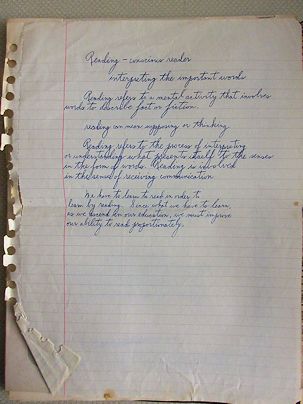 Reading - conscious reader
interpreting the important words
Reading refers to a mental activity that involves
words to describe fact or fiction.
reading can mean supposing or thinking
Reading refers to the process of interpreting
or understanding what presents itself to the senses
in the form of words. Reading is involved
in the sense of receiving communication
We have to learn to read in order to
learn by reading. Since what we have to learn,
as we ascend in our education, we must improve
our ability to read proportionately.